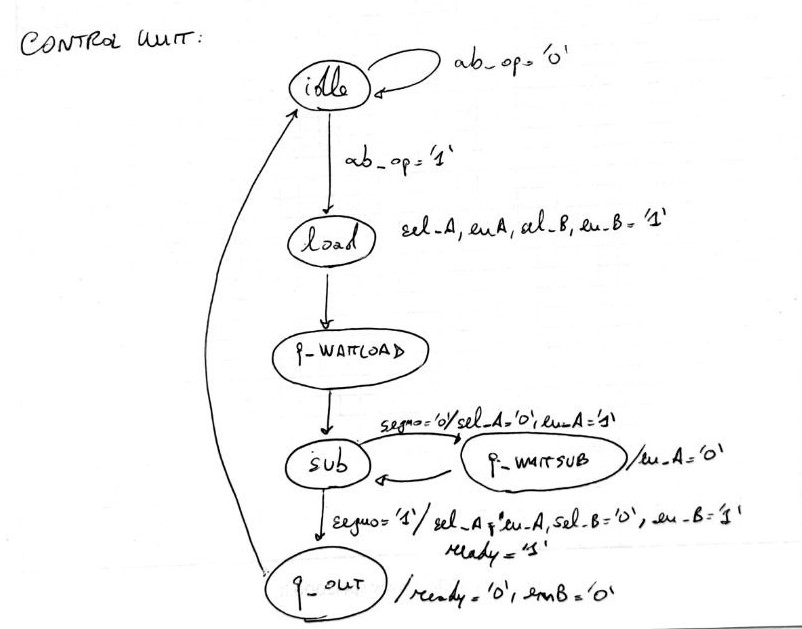 CONTROL UNIT:
idle
ab_op='0'
ab_op='1'
load
sel_A, enA, sel_B, en_B='1'
q_WAITLOAD
segno='0'/sel_A='0', en_A='1'
sub
q_WAITSUB
/en_A='0'
segno='1'/ sel_A, en_A, sel_B='0', en_B='1'
ready='1'
q_OUT
/ready='0', enB='0'